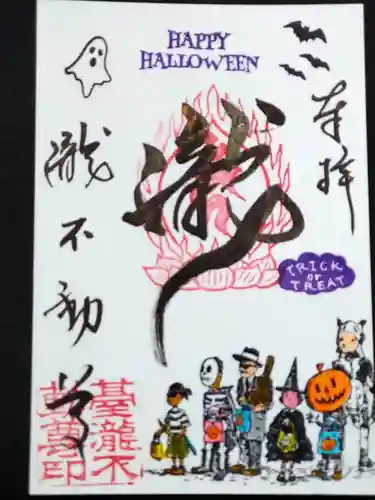 HAPPY
HALLOWEEN
奉拝
瀧
瀧不動尊
TRICK
or
TREAT